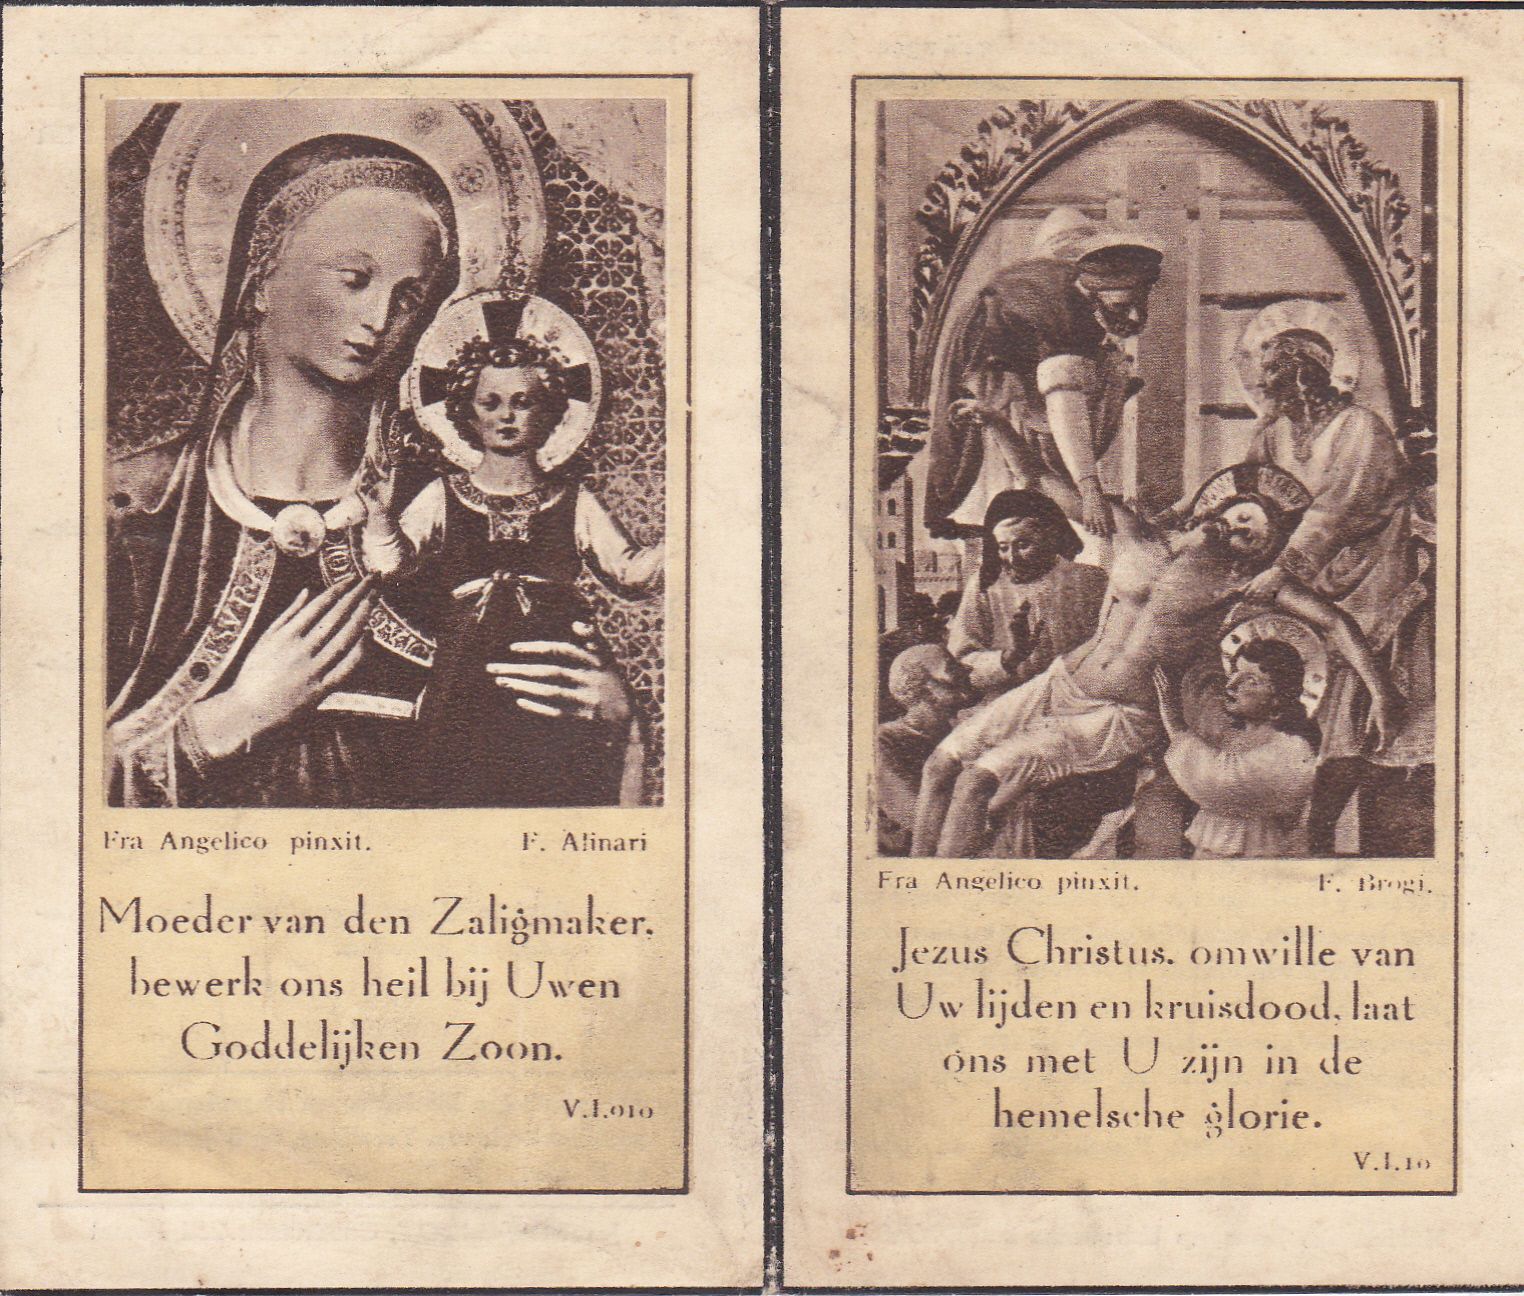 Fra Angelico pinxit. F. Alinari
Moeder van den Zaligmaker,
bewerk ons heil bij Uwen
Goddelijken Zoon.
V.I.010
Fra Angelico pinxit. F. Brogi.
Jezus Christus, omwille van
Uw lijden en kruisdood, laat
ons met U zijn in de
hemelsche glorie.
V.I.10